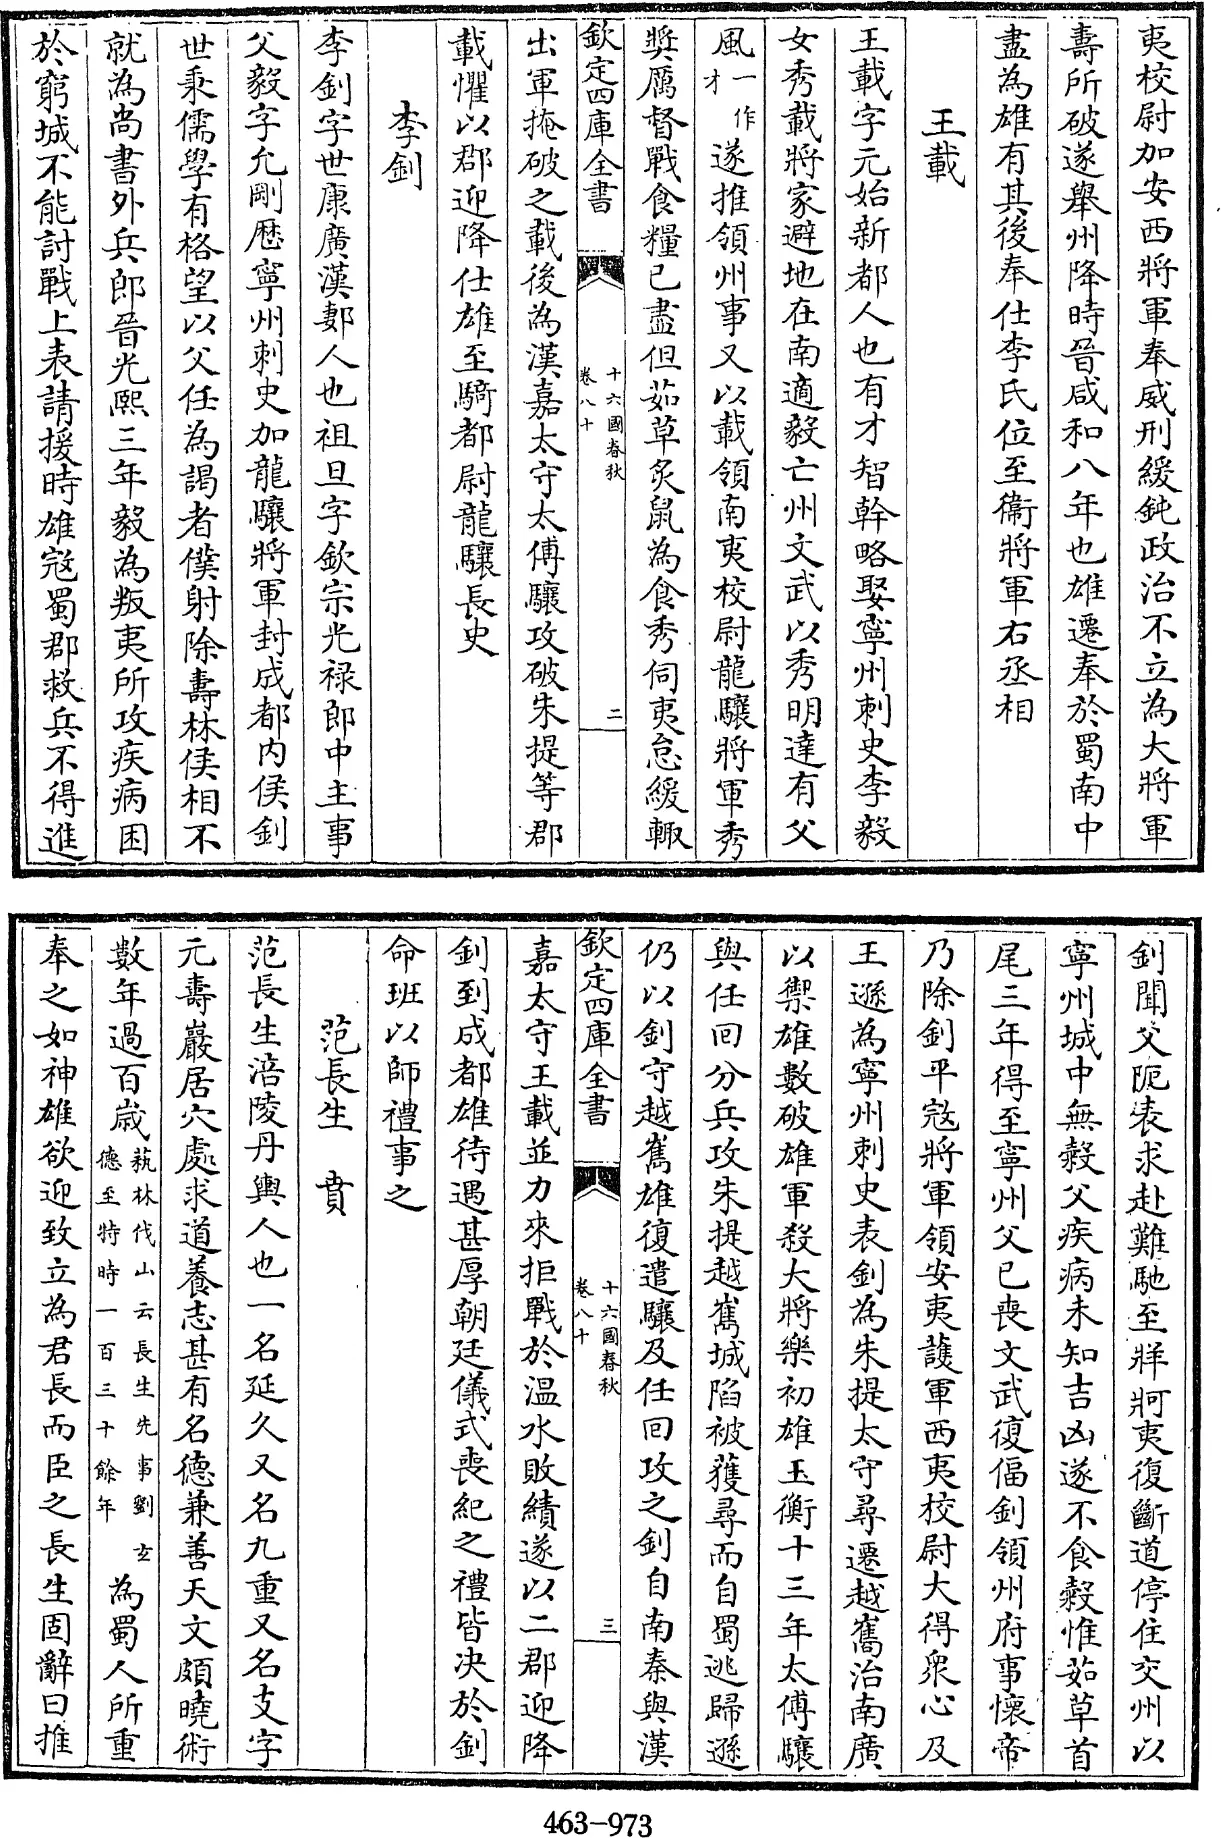 夷校尉加安西將軍奉威刑緩鈍政治不立為大將軍
壽所破遂舉州降時晉咸和八年也雄遷奉於蜀南中
盡為雄有其後奉仕李氏位至衞將軍右丞相
王載
王載字元始新都人也有才智幹略娶寧州刺史李毅
女秀載將家避地在南適毅亡州文武以秀明達有父
風一作才遂推領州事又以載領南夷校尉龍驤將軍秀
奬厲督戰食糧已盡但茹草炙鼠為食秀伺夷怠緩輙
欽定四庫全書
十六國春秋
卷八十
二
出軍掩破之載後為漢嘉太守太傅驤攻破朱提等郡
載懼以郡迎降仕雄至騎都尉龍驤長史
李釗
李釗字世康廣漢郪人也祖旦字欽宗光禄郎中主事
父毅字允剛歴寧州刺史加龍驤將軍封成都内侯釗
世秉儒學有格望以父任為謁者僕射除壽林侯相不
就為尚書外兵郎晉光熙三年毅為叛夷所攻疾病困
於窮城不能討戰上表請援時雄宼蜀郡救兵不得進
釗聞父阨表求赴難馳至牂牁夷復斷道停住交州以
寧州城中無糓父疾病未知吉凶遂不食糓惟茹草首
尾三年得至寧州父已喪文武復偪釗領州府事懷帝
乃除釗平宼將軍領安夷護軍西夷校尉大得衆心及
王遜為寧州刺史表釗為朱提太守尋遷越巂治南廣
以禦雄數破雄軍殺大將樂初雄玉衡十三年太傅驤
與任回分兵攻朱提越巂城陷被獲尋而自蜀逃歸遜
仍以釗守越巂雄復遣驤及任回攻之釗自南秦與漢
欽定四庫全書
十六國春秋
卷八十
三
嘉太守王載並力來拒戰於温水敗績遂以二郡迎降
釗到成都雄待遇甚厚朝廷儀式喪紀之禮皆决於釗
命班以師禮事之
范長生 賁
范長生涪陵丹興人也一名延久又名九重又名支字
元壽巖居穴處求道養志甚有名德兼善天文頗曉術
數年過百歳蓺林伐山云長生先事劉玄德至特時一百三十餘年為蜀人所重
奉之如神雄欲迎致立為君長而臣之長生固辭曰推
463-973